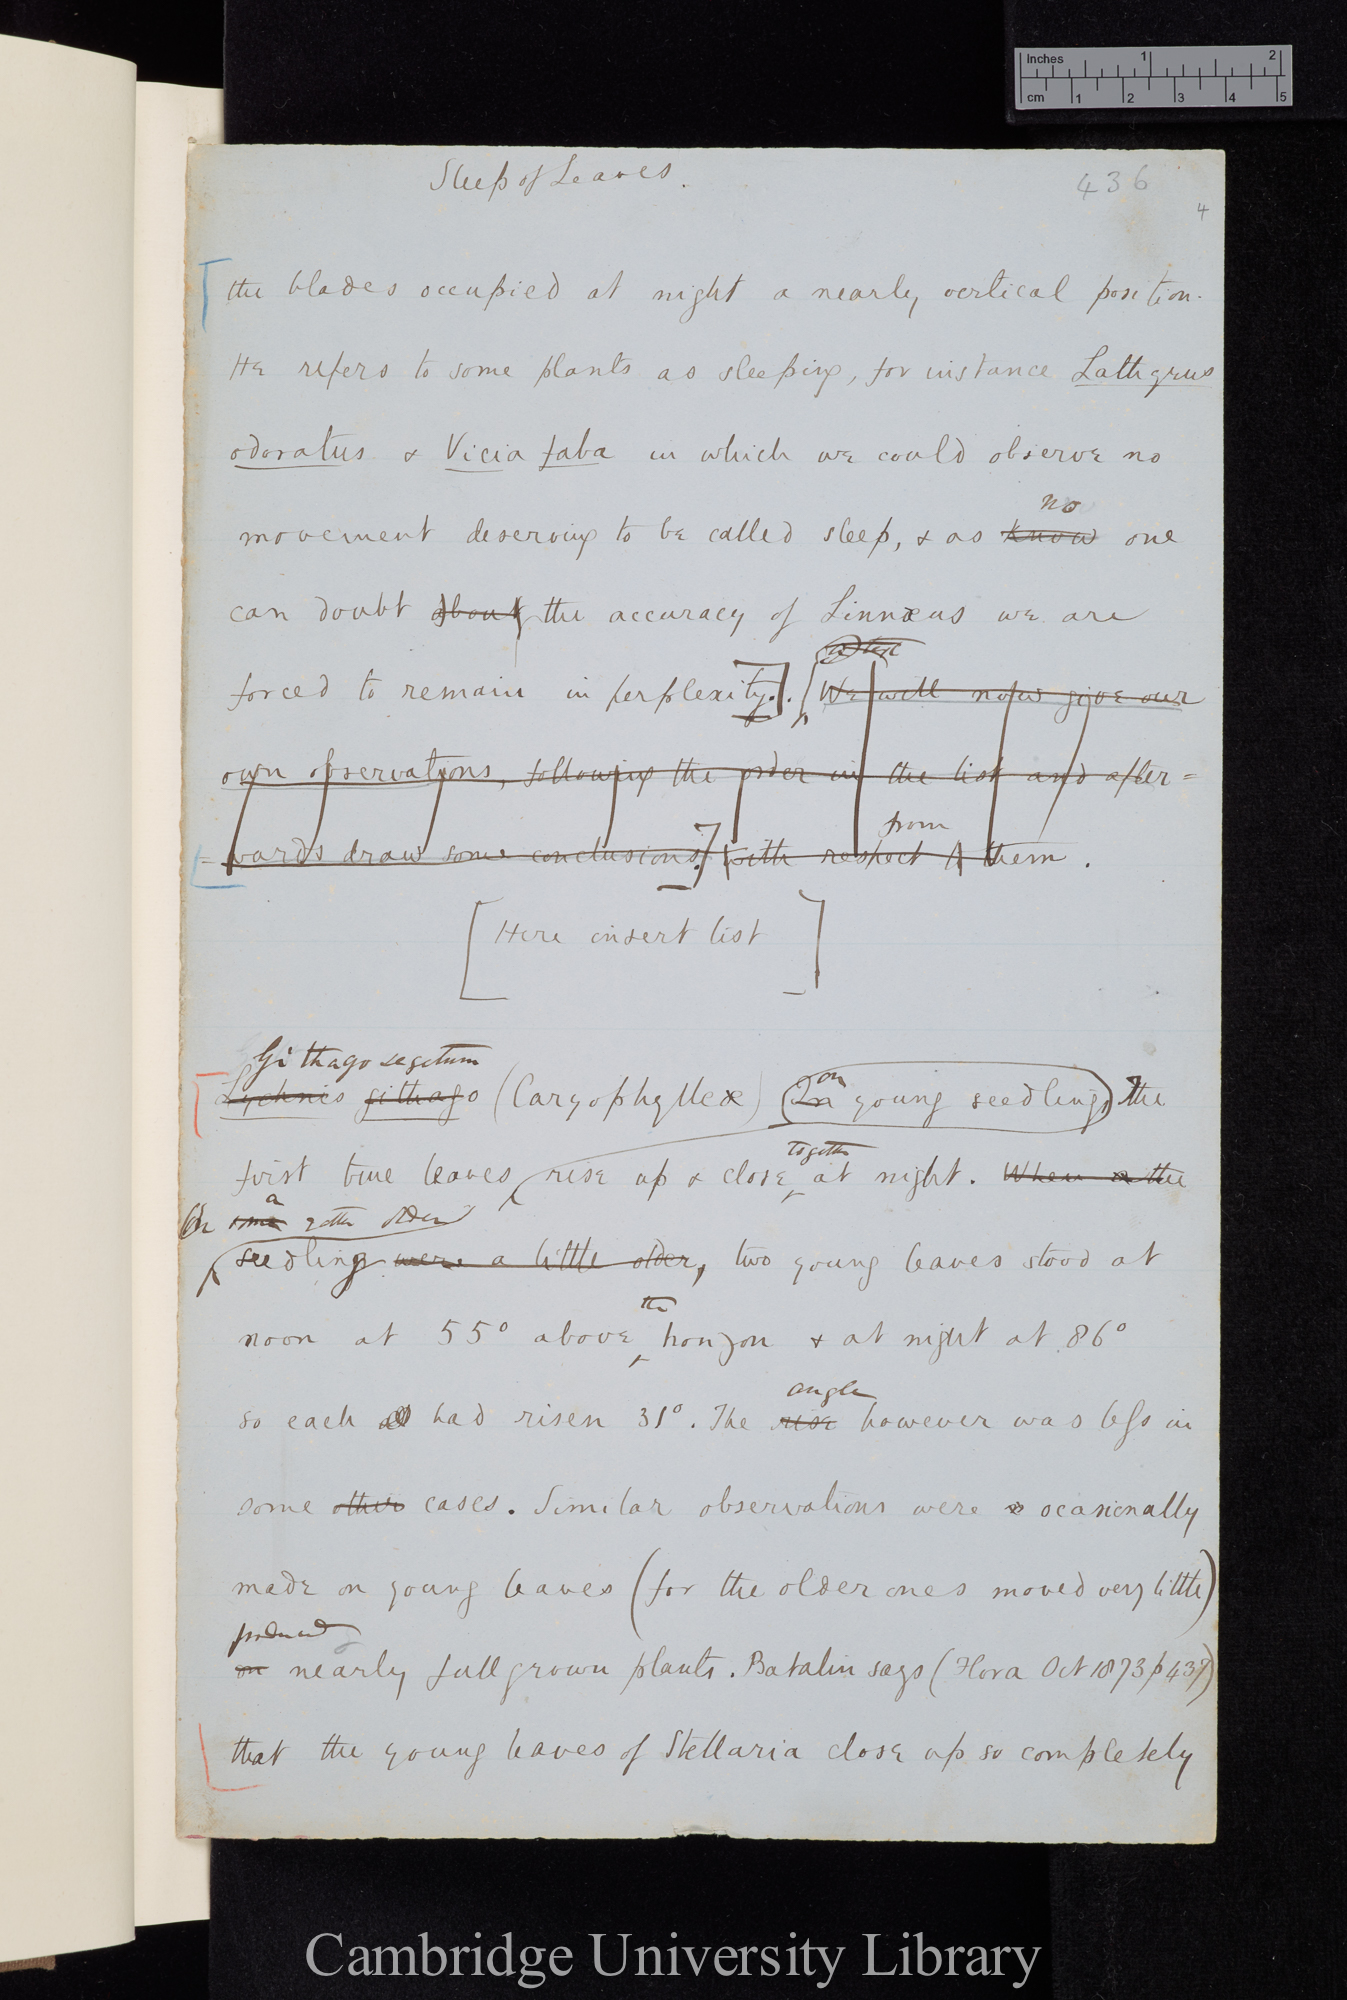 Inches 1 2
cm 1 2 3 4 5
Sleep of Leaves.
436
4
the blades occupied at night a nearly vertical position.
He refers to some plants as sleeping, for instance Lathyrus
odoratus & Vicia faba in which we could observe no
no
movement deserving to be called sleep, & as know one
can doubt about the accuracy of Linnæus we are
forced to remain in perplexity. We will now give our
own observations, following the order in the list and after=
from
=wards draw some conclusions. with respect them.
[Here insert list]
Githago segetum
on
Lychnis githago (Caryophylleæ) In young seedlings the
together
first true leaves rise up & close at night. When the
On a rather older
seedling were a little older, two young leaves stood at
the
noon at 55° above horizon & at night at 86°
angle
so each had risen 31°. The rise however was less in
some other cases. Similar observations were ocasionally
made on young leaves (for the older ones moved very little)
produced
on nearly full grown plants. Batalin says (Flora Oct 1873 p437)
that the young leaves of Stellaria close up so completely
Cambridge University Library